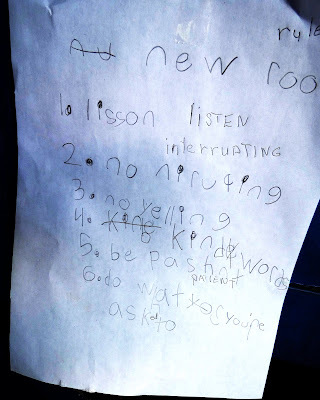 rule
new roo
1. lisson LISTEN
interruPTING
2. no niruting
3. no yelling
4. kind words
5. be pashnt
PATIENT
6. do wat you're
ask to